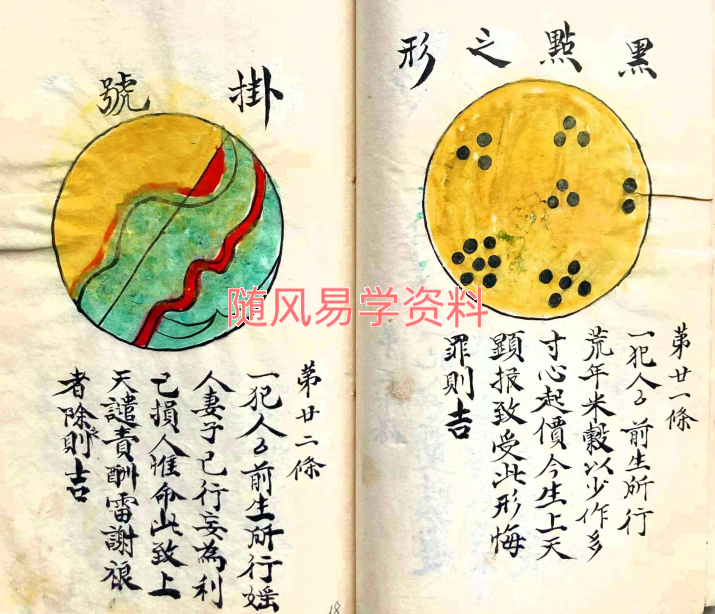 黑點之形
第廿一條
一犯人之前生所行
荒年米穀以少作多
寸心起價今生上天
顕报致受此形悔
罪則吉
掛號
第廿二條
一犯人之前生所行婬
人妻子已行妄為利
己損人惟命此致上
天譴責酬雷謝
者除則吉
随风易学资料
18